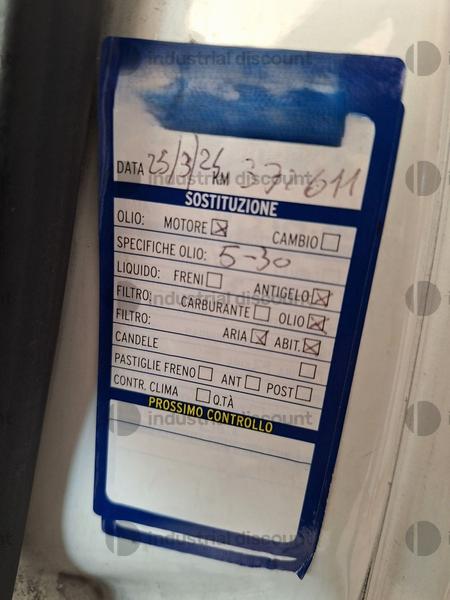 DATA 25/3/24 KM 37.611
SOSTITUZIONE
OLIO: MOTORE ☒ CAMBIO ☐
SPECIFICHE OLIO: 5-30
LIQUIDO: FRENI ☐ ANTIGELO ☒
FILTRO: CARBURANTE ☐ OLIO ☒
FILTRO: ARIA ☒ ABIT. ☒
CANDELE ☐
PASTIGLIE FRENO ☐ ANT ☐ POST ☐
CONTR. CLIMA ☐ Q.TÀ
PROSSIMO CONTROLLO
industrial discount